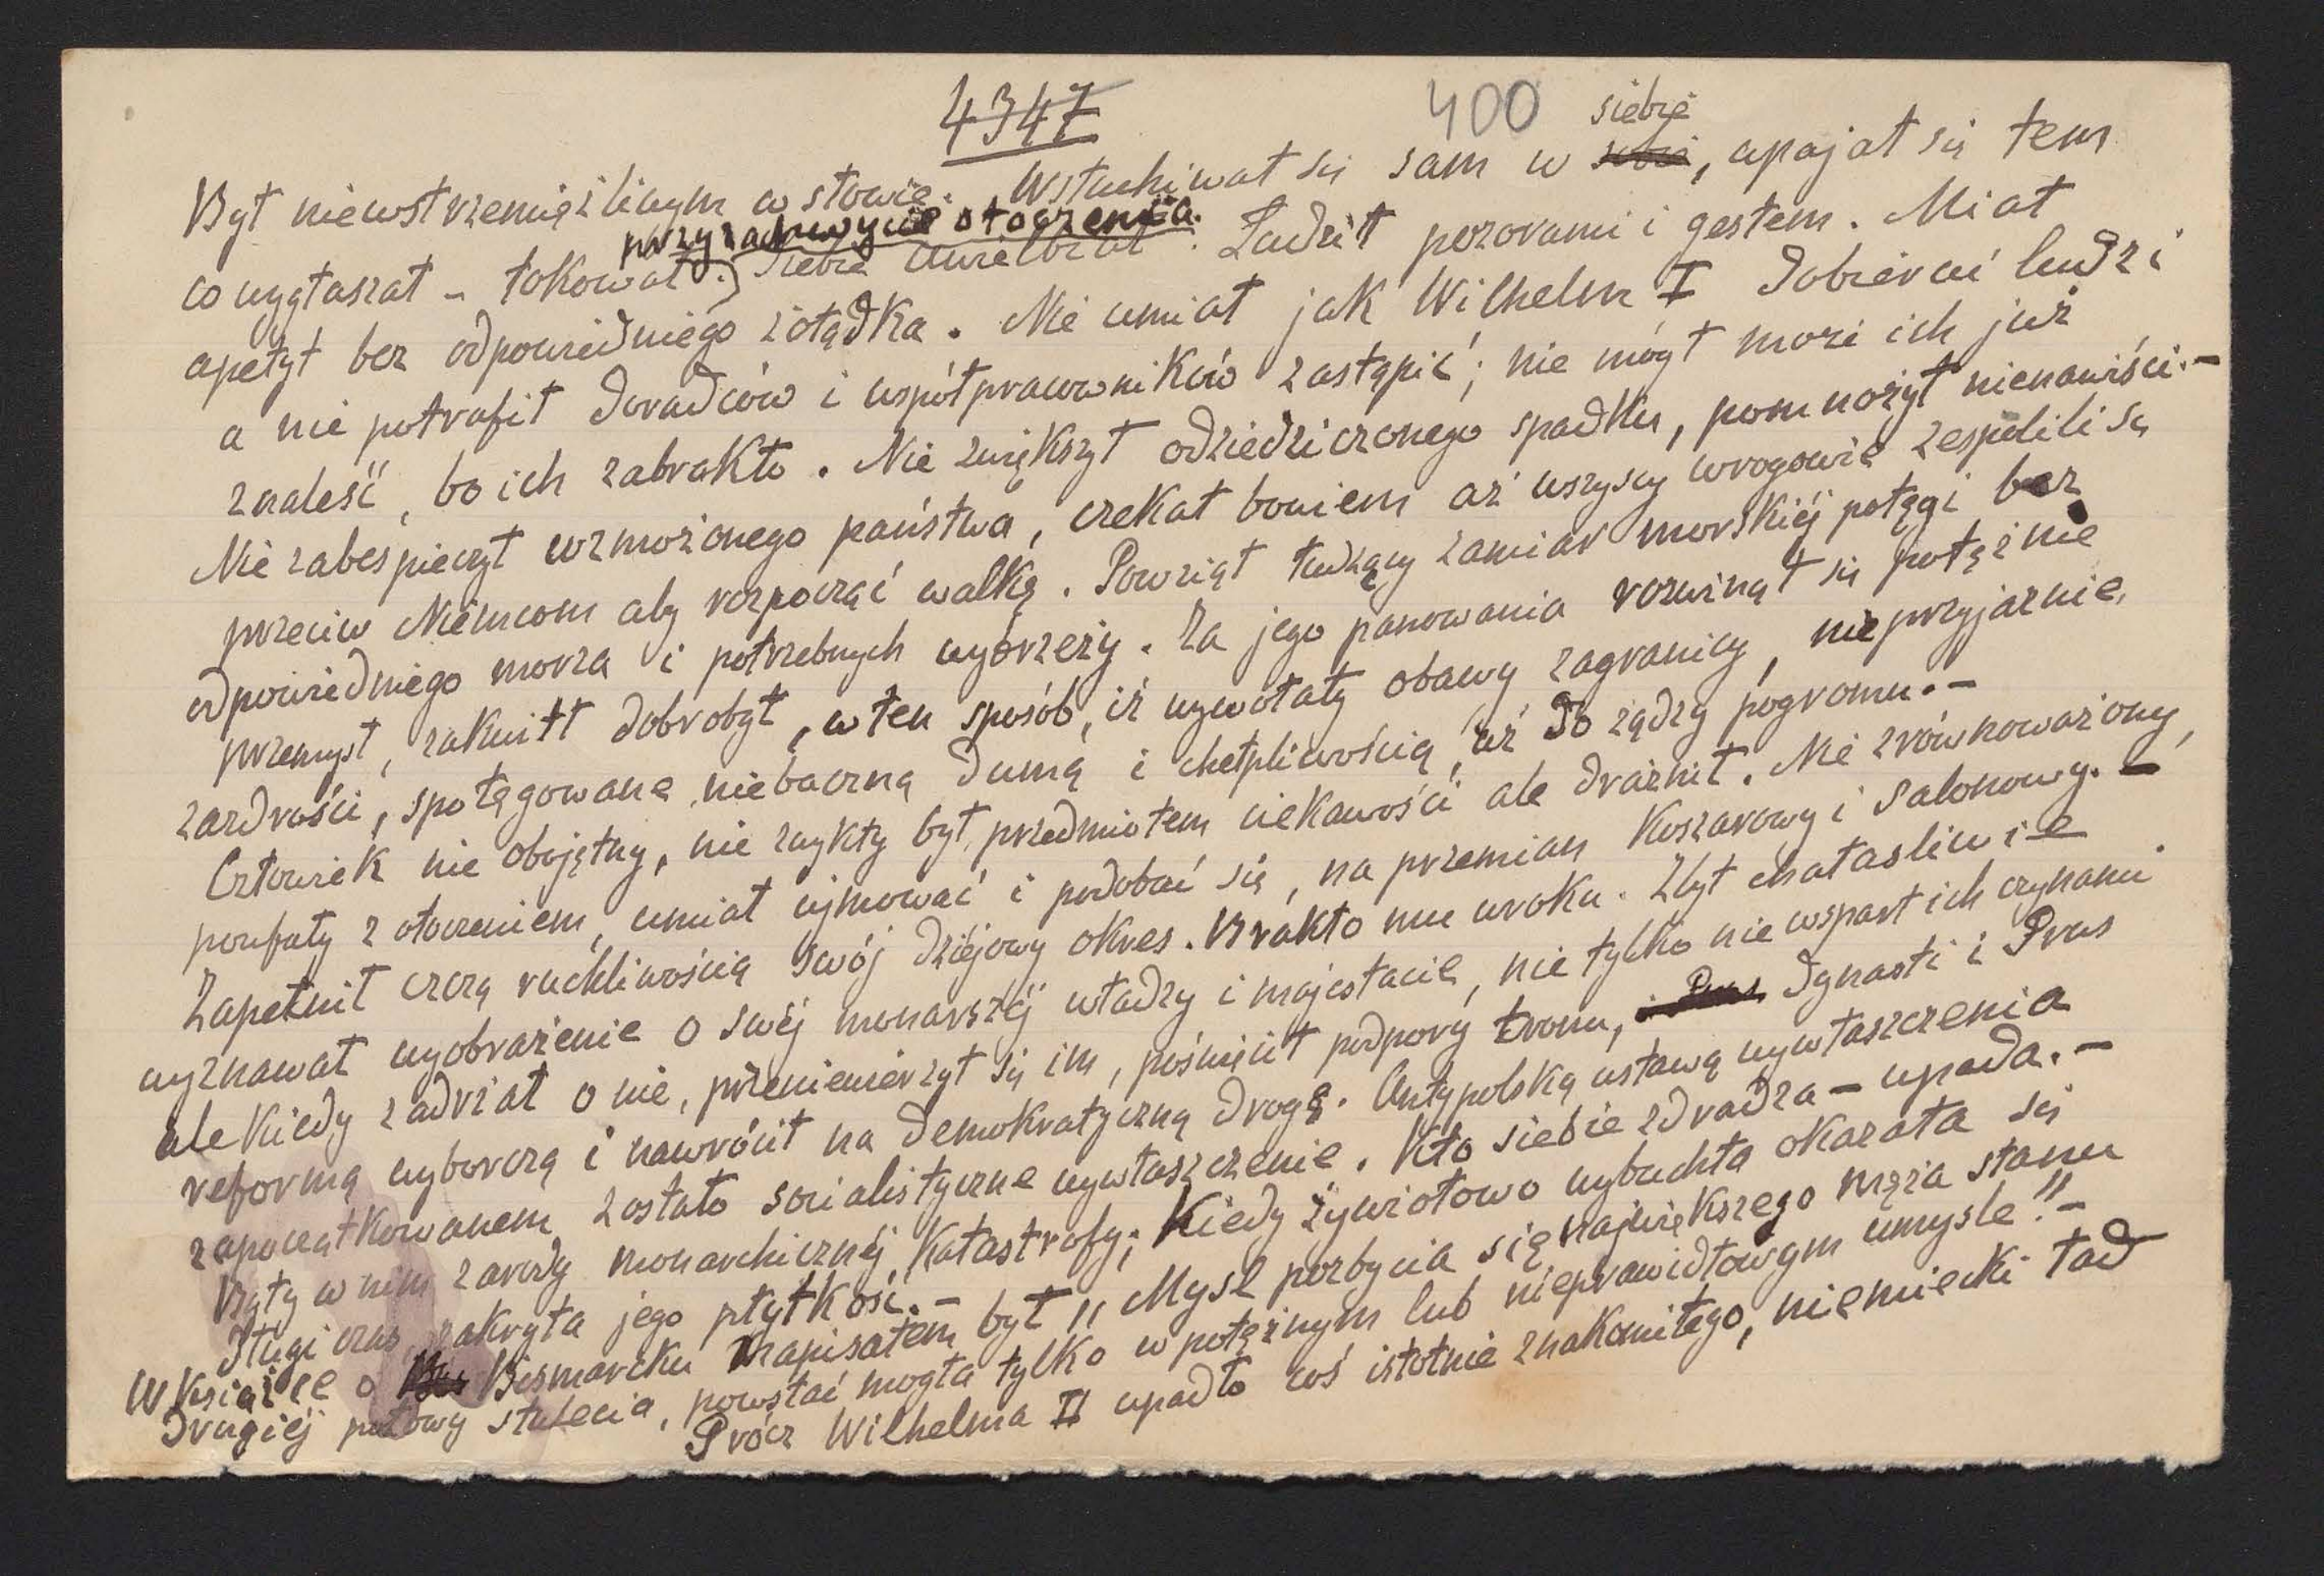 4347
400
Był niewstrzemięźliwym w słowie. Wsłuchiwał się sam w siebie, upajał się tem
co wygłaszał - tokował przy zachwycie otoczenia. Siebie uwielbiał. Łudził pozorami i gestem. Miał
apetyt bez odpowiedniego żołądka. Nie umiał jak Wilhelm I dobierać ludzi
a nie potrafił doradców i współpracowników zastąpić; nie mógł może ich już
znaleść, bo ich zabrakło. Nie zwiększył odziedziczonego spadku, pomnożył nienawiści.-
Nie zabespieczył wzmożonego państwa, czekał bowiem aż wszyscy wrogowie zespolili się
przeciw Niemcom aby rozpocząć walkę. Powziął łudzący zamiar morskiéj potęgi bez
odpowiedniego morza i potrzebnych wybrzeży. Za jego panowania rozwinął się potężnie
przemysł, zakwitł dobrobyt, w ten sposób, iż wywołały obawy zagranicy, nieprzyjaźnie,
zazdrości, spotęgowane niebaczną dumą i chełpliwością, aż do żądzy pogromu.-
Człowiek nie obojętny, nie zwykły był przedmiotem ciekawości ale drażnił. Nie zrównoważony,
poufały z otoczeniem, umiał ujmować i podobać się, na przemian koszarowy i salonowy.-
Zapełnił czczą ruchliwością swój dziejowy okres. Brakło mu uroku. Zbyt chałasliwie
wyznawał wyobrażenie o swéj monarszéj władzy i majestacie, nie tylko nie wsparł ich czynami
ale kiedy zadrżał o nie, przeniewierzył się im, poświęcił podpory tronu, dynasti i Prus
reformą wyborczą i nawrócił na demokratyczną drogę. Antypolską ustawą wywłaszczenia
zapoczątkowanem zostało socialistyczne wywłaszczenie. Kto siebie zdradza - upada.-
Były w nim zarody monarchicznéj katastrofy; kiedy żywiołowo wybuchła okazała się
Długi czas zakryta jego płytkość.-
W książce o Bismarcku napisałem był "Mysl pozbycia się największego męża stanu
drugiéj połowy stulecia, powstać mogła tylko w potężnym lub nieprawidłowym umysle."-
Prócz Wilhelma II upadło coś istotnie znakomitego, niemiecki ład